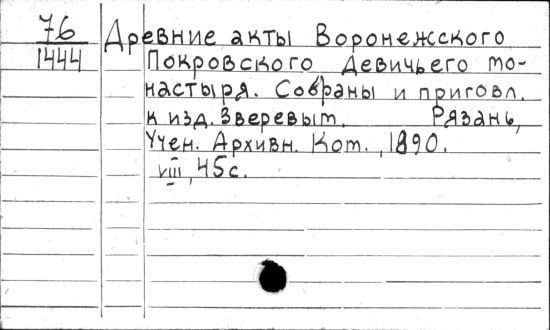 76 Древние акты Воронежского
1444 Покровского Девичьего мо-
настыря. Собраны и приговл.
к изд. Зверевыт. Рязань,
Учен. Архивн. Ком., 1890.
VIII, 45с.